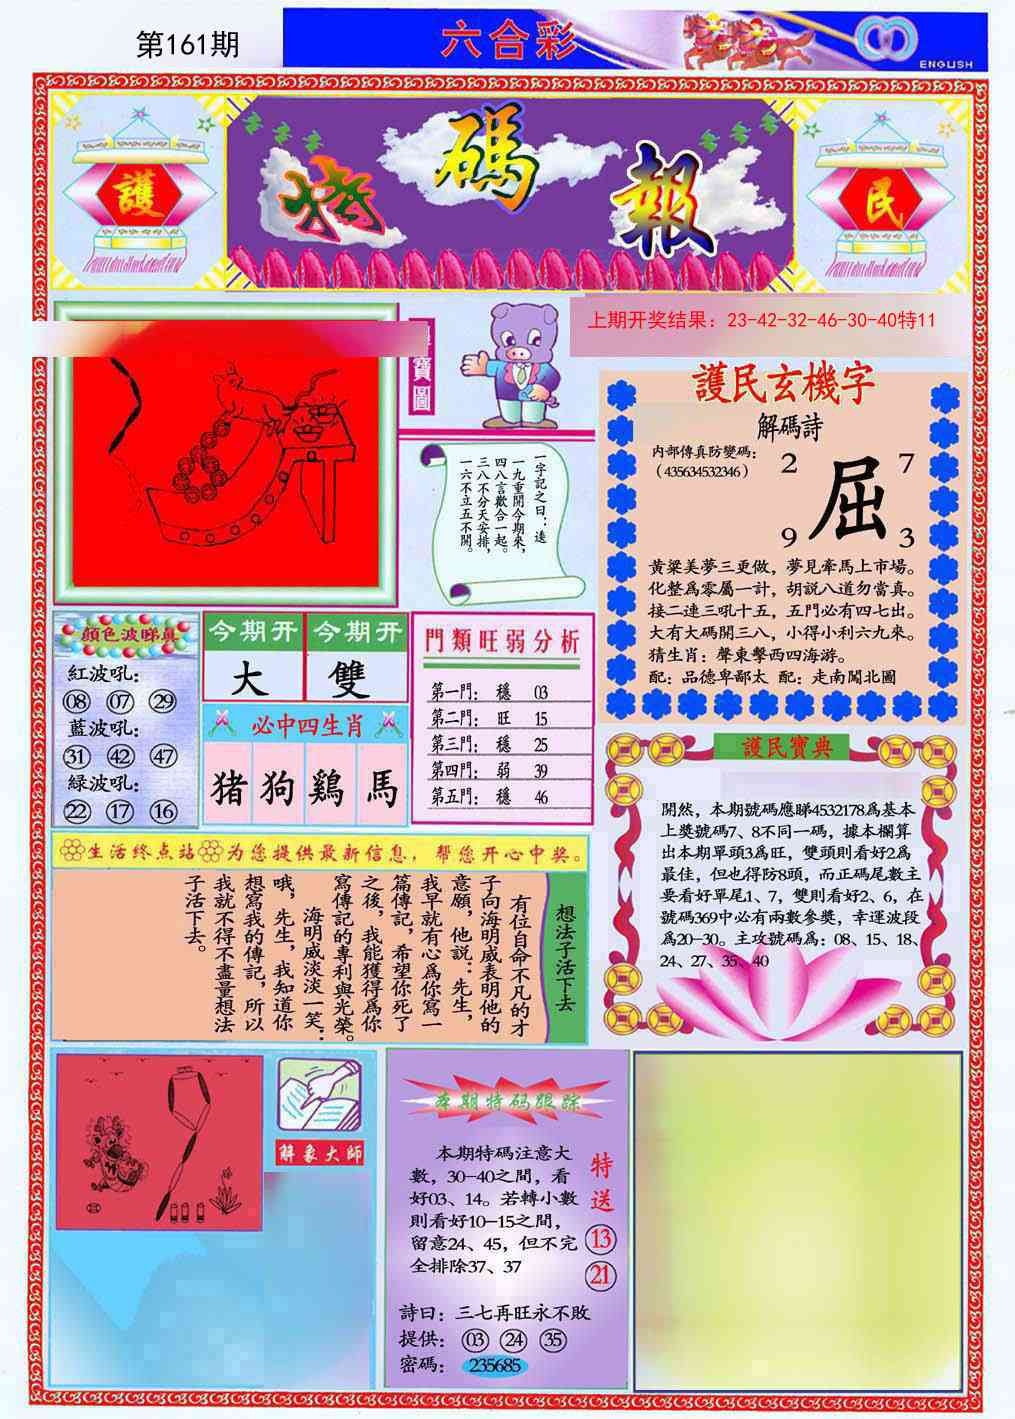 第161期
六合彩
ENGLISH
護
特碼報
民
上期开奖结果：23-42-32-46-30-40特11
寶圖
一字記之曰：遠
一九重開今期來，
四八言歡合一起。
三八不分天安排，
一六不立五不開。
護民玄機字
解碼詩
内部傳真防變碼：
（435634532346）
2 7
屈
9 3
黃粱美夢三更做，夢見牽馬上市場。
化整爲零屬一計，胡説八道勿當真。
接二連三吼十五，五門必有四七出。
大有大碼開三八，小得小利六九來。
猜生肖：聲東擊西四海游。
配：品德卑鄙太 配：走南闖北圖
顔色波睇真
紅波吼：
08 07 29
藍波吼：
31 42 47
緑波吼：
22 17 16
今期开 今期开
大 雙
必中四生肖
猪 狗 鷄 馬
門類旺弱分析
第一門： 穩 03
第二門： 旺 15
第三門： 穩 25
第四門： 弱 39
第五門： 穩 46
護民寶典
開然，本期號碼應睇4532178爲基本
上獎號碼7、8不同一碼，據本欄算
出本期單頭3爲旺，雙頭則看好2爲
最佳，但也得防8頭，而正碼尾數主
要看好單尾1、7，雙則看好2、6，在
號碼369中必有兩數參獎，幸運波段
爲20-30。主攻號碼爲：08、15、18、
24、27、35、40
生活终点站 为您提供最新信息，帮您开心中奖。
想法子活下去
有位自命不凡的才
子向海明威表明他的
意願，他説：先生，
我早就有心爲你寫一
篇傳記，希望你死了
之後，我能獲得爲你
寫傳記的專利與光榮。
海明威淡淡一笑：
哦，先生，我知道你
想寫我的傳記，所以
我就不得不盡量想法
子活下去。
解象大師
本期特码跟踪
本期特碼注意大
數，30-40之間，看
好03、14。若轉小數
則看好10-15之間，
留意24、45，但不完
全排除37、37
特送
13
21
詩曰：三七再旺永不敗
提供：03 24 35
密碼：235685